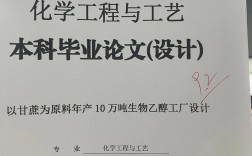 化学工程与工艺
本科毕业论文(设计)
以甘蔗为原料年产10万吨生物乙醇工厂设计
专 业 化学工程与工艺